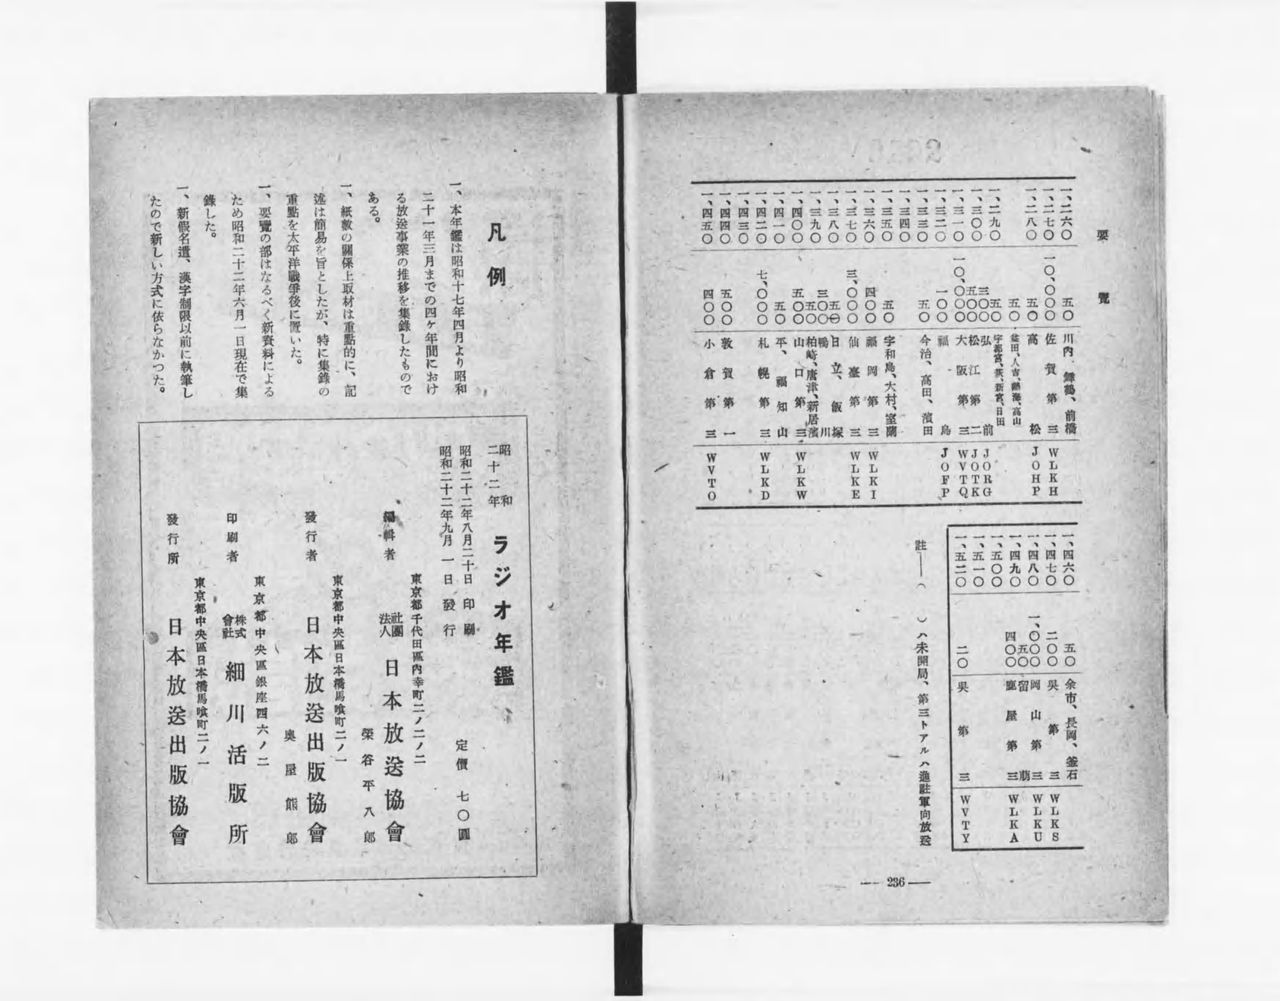 要覽
一、二六〇 五〇 川内、舞鶴、前橋
一、二七〇 一〇、〇〇〇 佐賀第三 WLKH
一、二八〇 五〇 高松 JOHP
五〇 益田、人吉、熱海、高山
一、二九〇 五〇 宇都宮、萩、新宮、日田
一、三〇〇 三〇〇 弘前 JORG
五〇〇 松江第二 JOTK
一、三一〇 一〇、〇〇〇 大阪第三 WVTQ
一、三二〇 一〇〇 福島 JOFP
一、三三〇 五〇 今治、高田、濱田
一、三四〇
一、三五〇 五〇 宇和島、大村、室蘭
一、三六〇 四〇〇 福岡第三 WLKI
一、三七〇 三、〇〇〇 仙臺第三 WLKE
一、三八〇 五〇 日立、飯塚
三〇〇 鴨川
一、三九〇 五〇 柏崎、唐津、新居濱
一、四〇〇 五〇〇 山口第三 WLKW
一、四一〇 五〇 平、福知山
一、四二〇 七、〇〇〇 札幌第三 WLKD
一、四三〇
一、四四〇 五〇〇 敦賀第一
一、四五〇 四〇〇 小倉第三 WVTO
一、四六〇 五〇 余市、長岡、釜石
一、四七〇 二〇〇 吳第三 WLKS
一、四八〇 一、〇〇〇 岡山第三 WLKU
五〇 留萠
一、四九〇 四〇〇 鹿屋第三 WLKA
一、五〇〇
一、五一〇
一、五二〇 二〇 吳第三 WVTY
註——( )ハ未開局、第三トアルハ進駐軍向放送
— 236 —
凡例
一、本年鑑は昭和十七年四月より昭和
二十一年三月までの四ヶ年間におけ
る放送事業の推移を集錄したもので
ある。
一、紙數の關係上取材は重點的に、記
述は簡易を旨としたが、特に集錄の
重點を太平洋戰爭後に置いた。
一、要覽の部はなるべく新資料による
ため昭和二十二年六月一日現在で集
錄した。
一、新假名遣、漢字制限以前に執筆し
たので新しい方式に依らなかつた。
昭和二十二年 ラジオ年鑑
昭和二十二年八月二十日 印刷
昭和二十二年九月一日 發行
定價 七〇圓
東京都千代田區内幸町二ノ二ノ二
編輯者 社團法人 日本放送協會
榮谷平八郎
東京都中央區日本橋馬喰町二ノ一
發行者 日本放送出版協會
奥屋熊郎
東京都中央區銀座西六ノ二
印刷者 株式會社 細川活版所
東京都中央區日本橋馬喰町二ノ一
發行所 日本放送出版協會